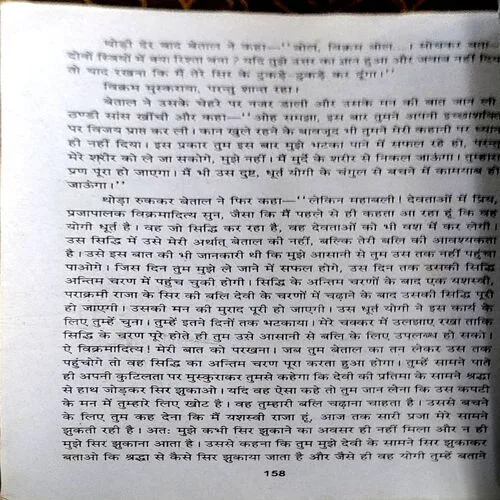 थोड़ी देर बाद बेताल ने कहा—''बोल, विक्रम बोल...। सोचकर बता
दोनों स्त्रियों में क्या रिश्ता बना ? यदि तुझे उत्तर का ज्ञान हुआ और जवाब नहीं दिया
तो याद रखना कि मैं तेरे सिर के टुकड़े-टुकड़े कर दूंगा।''
विक्रम मुस्कराया, परन्तु शान्त रहा।
बेताल ने उसके चेहरे पर नजर डाली और उसके मन की बात जान ली
ठण्डी सांस खींची और कहा—''ओह समझा, इस बार तुमने अपनी इच्छाशक्ति
पर विजय प्राप्त कर ली। कान खुले रहने के बावजूद भी तुमने मेरी कहानी पर ध्यान
ही नहीं दिया। इस प्रकार तुम इस बार मुझे भटका पाने में सफल रहे हो, परन्तु
मेरे शरीर को ले जा सकोगे, मुझे नहीं। मैं मुर्दे के शरीर से निकल जाऊंगा। तुम्हारा
प्रण पूरा हो जाएगा। मैं भी उस दुष्ट, धूर्त योगी के चंगुल से बचने में कामयाब हो
जाऊंगा।''
थोड़ा रुककर बेताल ने फिर कहा—''लेकिन महाबली। देवताओं में प्रिय,
प्रजापालक विक्रमादित्य सुन, जैसा कि मैं पहले से ही कहता आ रहा हूं कि वह
योगी धूर्त है। वह जो सिद्धि कर रहा है, वह देवताओं को भी वश में कर लेगी।
उस सिद्धि में उसे मेरी अर्थात् बेताल की नहीं, बल्कि तेरी बलि की आवश्यकता
है। उसे इस बात की भी जानकारी थी कि मुझे आसानी से तुम उस तक नहीं पहुंचा
पाओगे। जिस दिन तुम मुझे ले जाने में सफल होगे, उस दिन तक उसकी सिद्धि
अन्तिम चरण में पहुंच चुकी होगी। सिद्धि के अन्तिम चरणों के बाद एक यशस्वी,
पराक्रमी राजा के सिर की बलि देवी के चरणों में चढ़ाने के बाद उसकी सिद्धि पूरी
हो जाएगी। उसकी मन की मुराद पूरी हो जाएगी। उस धूर्त योगी ने इस कार्य के
लिए तुम्हें चुना। तुम्हें इतने दिनों तक भटकाया। मेरे चक्कर में उलझाए रखा ताकि
सिद्धि के चरण पूरे होते ही तुम उसे आसानी से बलि के लिए उपलब्ध हो सको।
ऐ विक्रमादित्य! मेरी बात को परखना। जब तुम बेताल का तन लेकर उस तक
पहुंचोगे तो वह सिद्धि का अन्तिम चरण पूरा करता हुआ होगा। तुम्हें सामने पाते
ही अपनी कुटिलता पर मुस्कुराकर तुमसे कहेगा कि देवी की प्रतिमा के सामने श्रद्धा
से हाथ जोड़कर सिर झुकाओ। यदि वह ऐसा कहे तो तुम जान लेना कि उस कपटी
के मन में तुम्हारे लिए खोट है। वह तुम्हारी बलि चढ़ाना चाहता है। उससे बचने
के लिए तुम कह देना कि मैं यशस्वी राजा हूं, आज तक सारी प्रजा मेरे सामने
झुकती रही है। अतः मुझे कभी सिर झुकाने का अवसर ही नहीं मिला और न ही
मुझे सिर झुकाना आता है। उससे कहना कि तुम मुझे देवी के सामने सिर झुकाकर
बताओ कि श्रद्धा से कैसे सिर झुकाया जाता है और जैसे ही वह योगी तुम्हें बताने
158